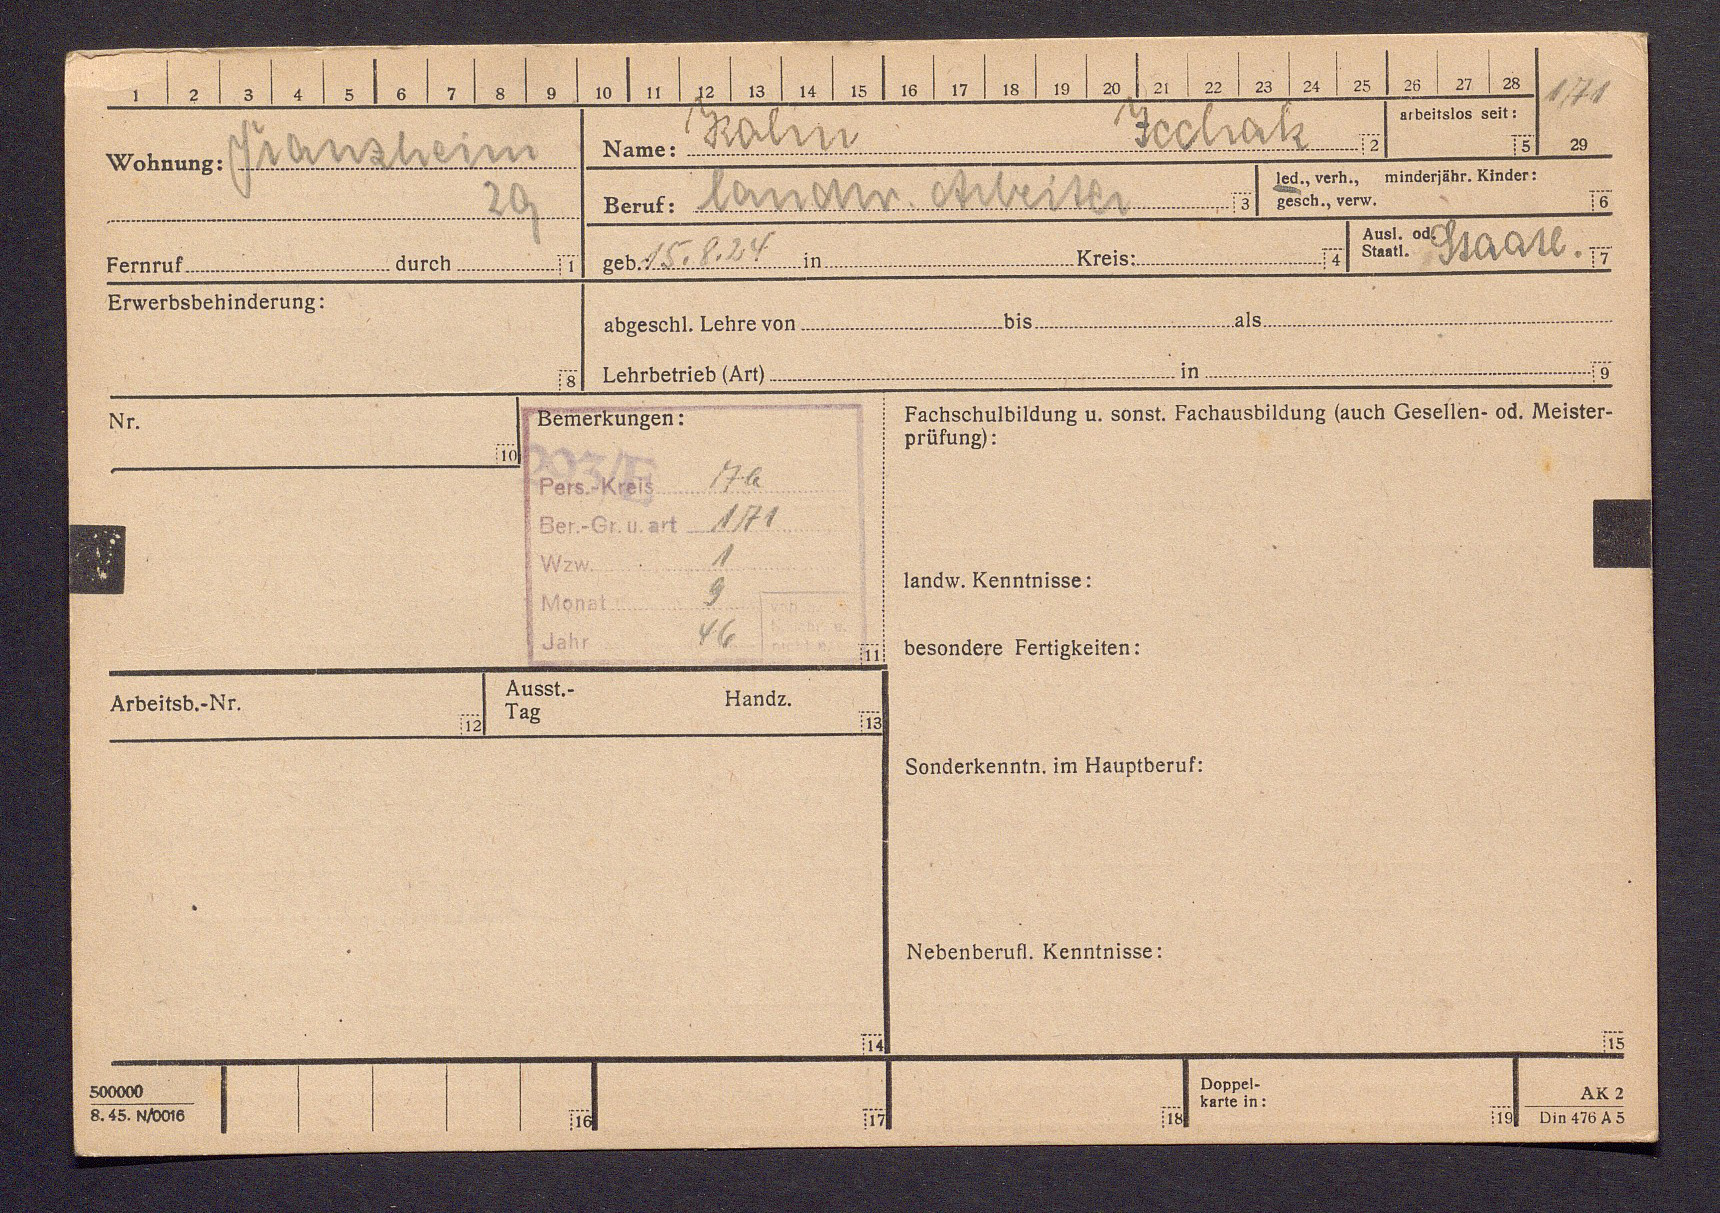 1 2 3 4 5 6 7 8 9 10 11 12 13 14 15 16 17 18 19 20 21 22 23 24 25 26 27 28 1/71
29
Wohnung: Franzheim
29
Fernruf durch 1
Name: Kalin Icchak 2
arbeitslos seit: 5
Beruf: landw. Arbeiter 3
led., verh., minderjähr. Kinder:
gesch., verw. 6
geb. 15.8.24 in Kreis: 4
Ausl. od.
Staatl. 7
Erwerbsbehinderung:
8
abgeschl. Lehre von bis als
Lehrbetrieb (Art) in 9
Nr.
10
Bemerkungen:
293/E
Pers.-Kreis 7a
Ber.-Gr. u. art 1/71
Wzw. 1
Monat 9
Jahr 46
11
Fachschulbildung u. sonst. Fachausbildung (auch Gesellen- od. Meister-
prüfung):
landw. Kenntnisse:
besondere Fertigkeiten:
Sonderkenntn. im Hauptberuf:
Nebenberufl. Kenntnisse:
15
Arbeitsb.-Nr. 12
Ausst.-
Tag Handz. 13
14
500000
8. 45. N/0016
16 17 18
Doppel-
karte in: 19
AK 2
Din 476 A 5